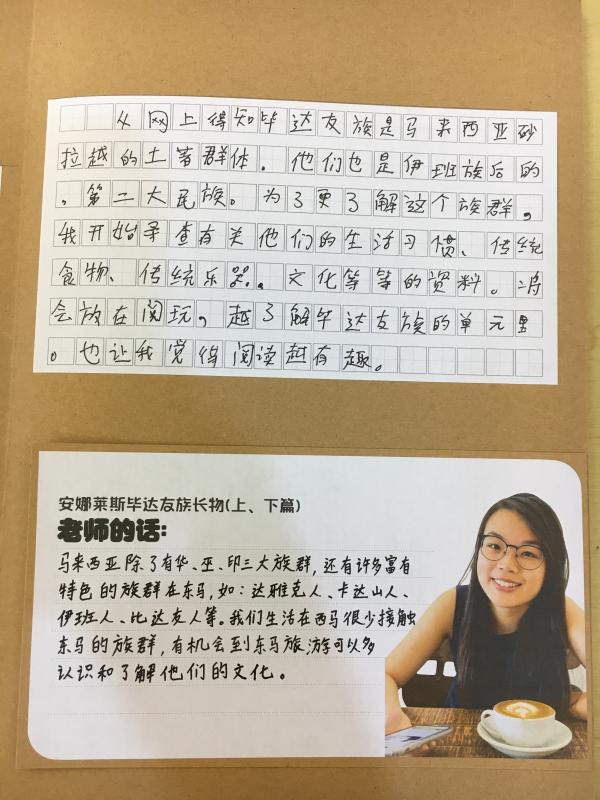 从网上得知毕达友族是马来西亚砂
拉越的土著群体。他们也是伊班族后的
，第二大民族。为了更了解这个族群，
我开始寻查有关他们的生活习惯、传统
食物、传统乐器、文化等等的资料。
会放在阅玩，越了解毕达友族的单元里
。也让我觉得阅读越有趣。
安娜莱斯毕达友族长物(上、下篇)
老师的话:
马来西亚除了有华、巫、印三大族群，还有许多富有
特色的族群在东马，如：达雅克人、卡达山人、
伊班人、比达友人等。我们生活在西马很少接触
东马的族群，有机会到东马旅游可以多
认识和了解他们的文化。